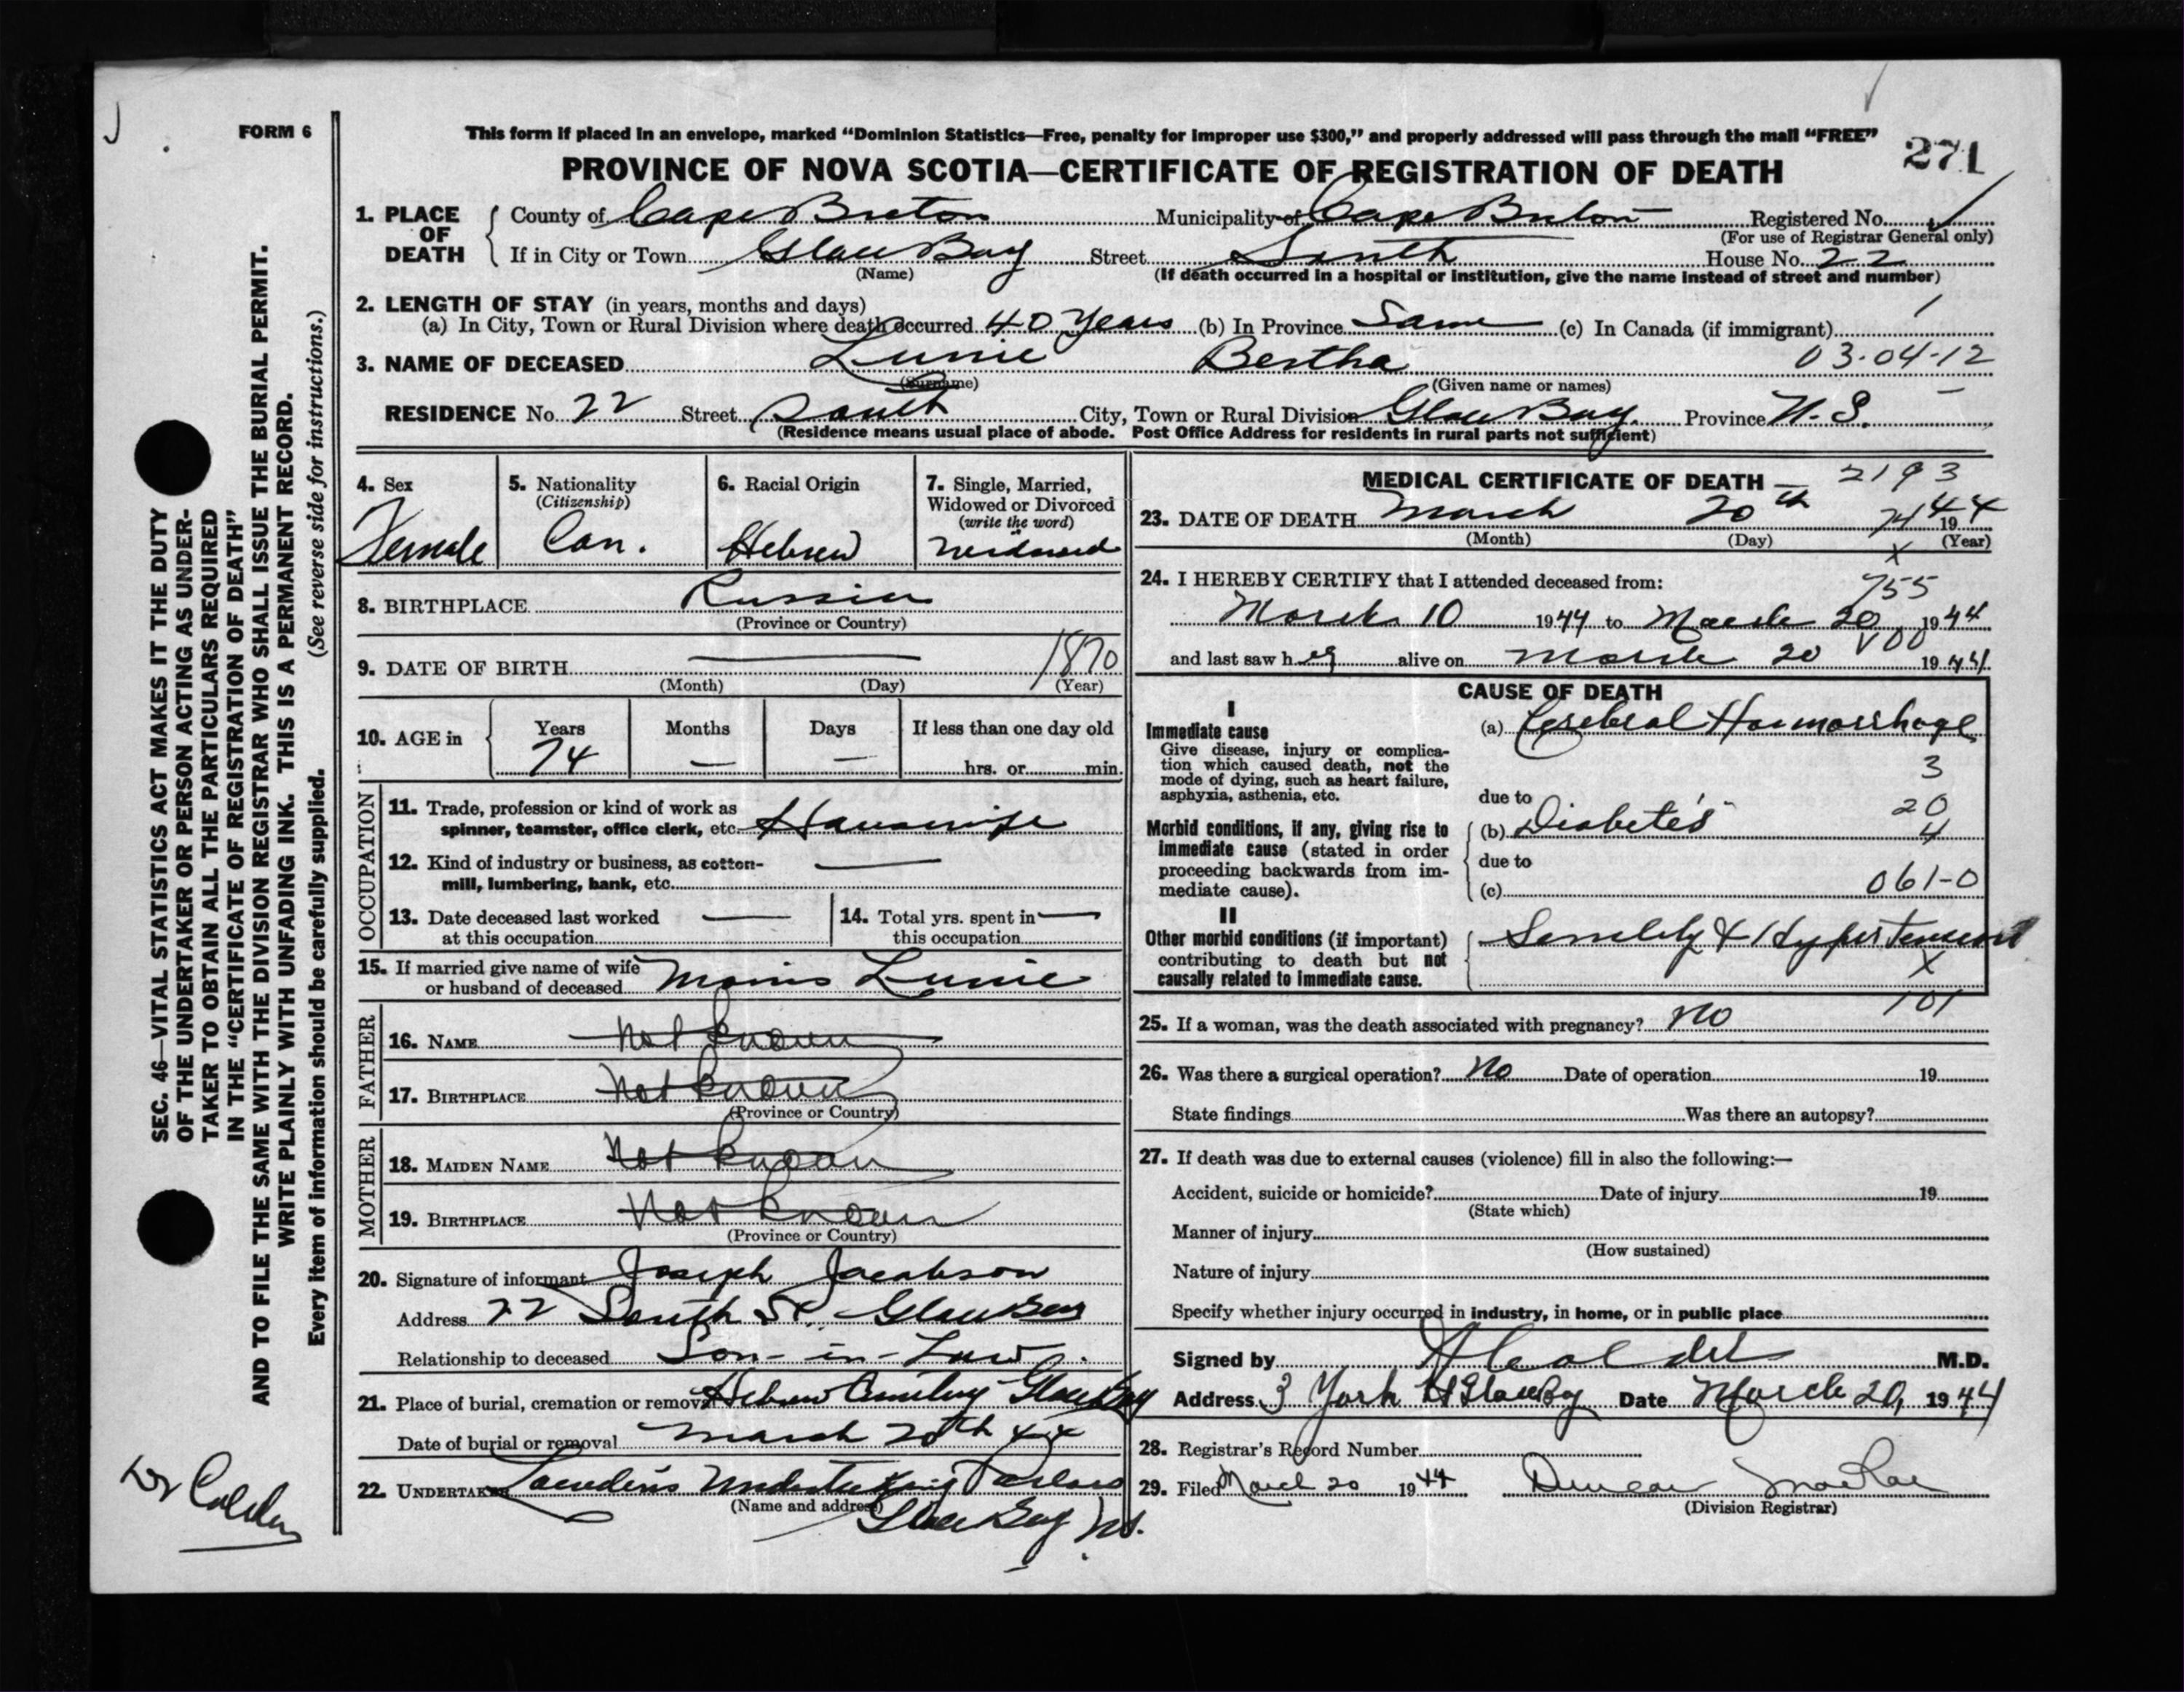 FORM 6
This form if placed in an envelope, marked "Dominion Statistics—Free, penalty for improper use $300," and properly addressed will pass through the mail "FREE"
271
PROVINCE OF NOVA SCOTIA—CERTIFICATE OF REGISTRATION OF DEATH
1. PLACE OF DEATH
County of Cape Breton Municipality of Cape Breton Registered No.
(For use of Registrar General only)
If in City or Town Glace Bay Street South House No. 22
(Name) (If death occurred in a hospital or institution, give the name instead of street and number)
2. LENGTH OF STAY (in years, months and days)
(a) In City, Town or Rural Division where death occurred 40 Years (b) In Province Same (c) In Canada (if immigrant)
3. NAME OF DECEASED Lurie Bertha 03-04-12
(Surname) (Given name or names)
RESIDENCE No. 22 Street South City, Town or Rural Division Glace Bay. Province N.S.
(Residence means usual place of abode. Post Office Address for residents in rural parts not sufficient)
4. Sex
Female
5. Nationality
(Citizenship)
Can.
6. Racial Origin
Hebrew
7. Single, Married,
Widowed or Divorced
(write the word)
Widowed
8. BIRTHPLACE Russia
(Province or Country)
9. DATE OF BIRTH 1870
(Month) (Day) (Year)
10. AGE in
Years Months Days If less than one day old
74 — — hrs. or min.
OCCUPATION
11. Trade, profession or kind of work as
spinner, teamster, office clerk, etc. Housewife
12. Kind of industry or business, as cotton-
mill, lumbering, bank, etc.
13. Date deceased last worked
at this occupation
14. Total yrs. spent in
this occupation
15. If married give name of wife
or husband of deceased Morris Lurie
FATHER
16. NAME Not known
17. BIRTHPLACE Not known
(Province or Country)
MOTHER
18. MAIDEN NAME Not known
19. BIRTHPLACE Not known
(Province or Country)
20. Signature of informant Joseph Jacobson
Address 22 South St. Glace Bay
Relationship to deceased Son-in-Law.
21. Place of burial, cremation or removal Hebrew Cemetery Glace Bay
Date of burial or removal March 20th 44
22. UNDERTAKER Undertaking Parlors
(Name and address)
Glace Bay N.S.
MEDICAL CERTIFICATE OF DEATH
2193
23. DATE OF DEATH March 20th 1944
74
(Month) (Day) (Year)
X
24. I HEREBY CERTIFY that I attended deceased from:
755
March 10 1944 to March 20 1944
V00
and last saw her alive on March 20 1944
CAUSE OF DEATH
I
Immediate cause
Give disease, injury or complica-
tion which caused death, not the
mode of dying, such as heart failure,
asphyxia, asthenia, etc.
(a) Cerebral Haemorrhage
3
due to
20
Morbid conditions, if any, giving rise to
immediate cause (stated in order
proceeding backwards from im-
mediate cause).
(b) Diabetes
4
due to
(c) 061-0
II
Other morbid conditions (if important)
contributing to death but not
causally related to immediate cause.
Senility & Hypertension
X
101
25. If a woman, was the death associated with pregnancy? No
26. Was there a surgical operation? No Date of operation 19
State findings Was there an autopsy?
27. If death was due to external causes (violence) fill in also the following:—
Accident, suicide or homicide? Date of injury 19
(State which)
Manner of injury
(How sustained)
Nature of injury
Specify whether injury occurred in industry, in home, or in public place
Signed by Calder M.D.
Address 3 York St Glace Bay Date March 20, 1944
28. Registrar's Record Number
29. Filed March 20 1944 Duncan MacRae
(Division Registrar)
SEC. 46—VITAL STATISTICS ACT MAKES IT THE DUTY
OF THE UNDERTAKER OR PERSON ACTING AS UNDER-
TAKER TO OBTAIN ALL THE PARTICULARS REQUIRED
IN THE "CERTIFICATE OF REGISTRATION OF DEATH"
AND TO FILE THE SAME WITH THE DIVISION REGISTRAR WHO SHALL ISSUE THE BURIAL PERMIT.
WRITE PLAINLY WITH UNFADING INK. THIS IS A PERMANENT RECORD.
Every item of information should be carefully supplied. (See reverse side for instructions.)
Dr Calder